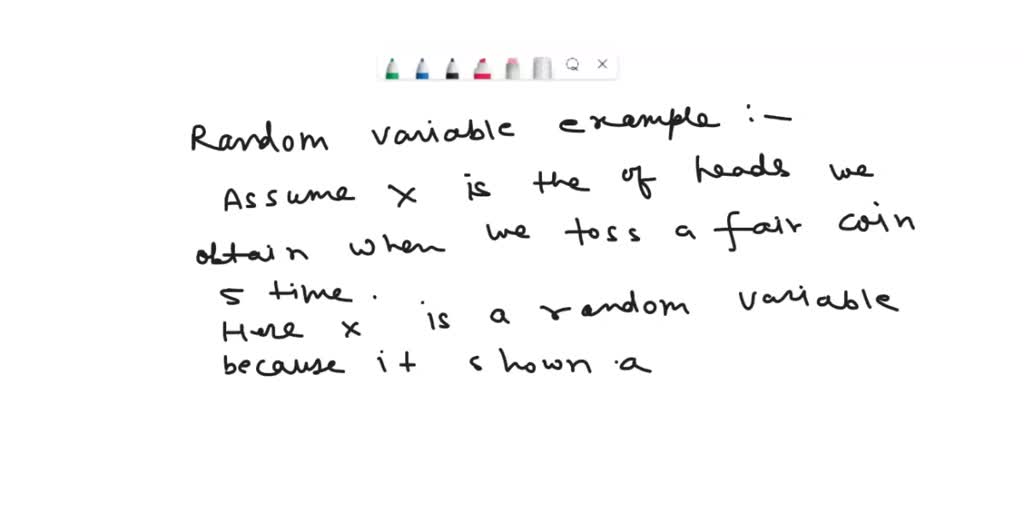 Random variable example :-
Assume X is the of heads we
obtain when we toss a fair coin
5 time.
Here x is a random variable
because it shown a